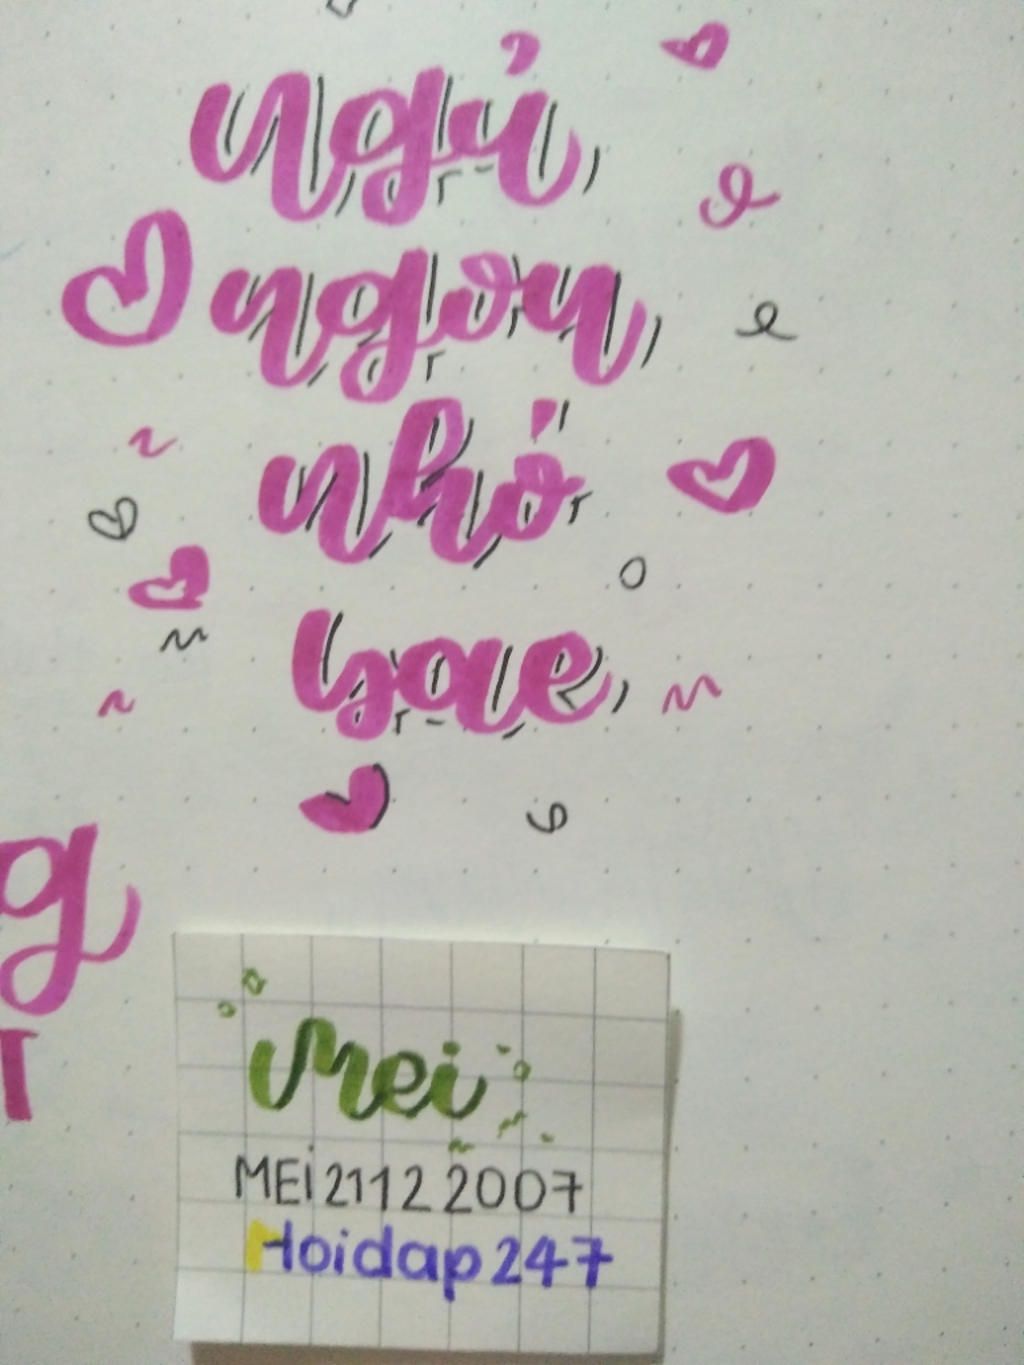 ngủ
ngon
nhớ
iu
g
Mei
MEi21122007
Hoidap247